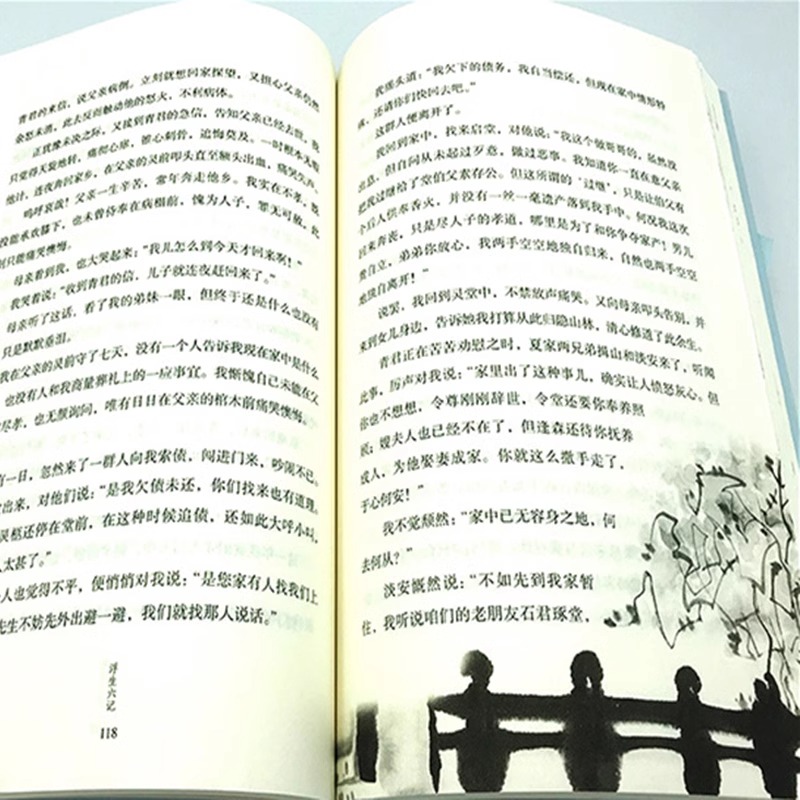 青君的来信，说父亲病倒。立刻就想回家探望，又担心父亲仍然
余怒未消，此去反而触动他的怒火，不利病体。
正犹豫未决之际，又接到青君的急信，告知父亲已经去世。我
只觉得天旋地转，痛彻心扉，锥心刺骨，追悔莫及。一时根本无暇
他计，连夜奔回家乡，在父亲的灵前叩头直至额头出血，痛哭失声。
呜呼哀哉！父亲一生辛苦，常年奔走他乡。我实在不孝，既
没能承欢膝下，也未曾侍奉在病榻前，愧为人子，罪无可赦，此
刻只能痛哭懊悔。
母亲看到我，也大哭起来：“我儿怎么到今天才回来啊！”
我哭着说：“收到青君的信，儿子就连夜赶回来了。”
母亲听了这话，看了我的弟妹一眼，但终于还是什么也没有
只是默默垂泪。
我在父亲的灵前守了七天，没有一个人告诉我现在家中是什么
也没有人和我商量葬礼上的一应事宜。我惭愧自己未能在父
尽孝，也无颜询问，唯有日日在父亲的棺木前痛哭懊悔。
有一日，忽然来了一群人向我索债，闯进门来，吵闹不已。
出来，对他们说：“是我欠债未还，你们找来也有道理。
灵柩还停在堂前，在这种时候追债，还如此大呼小叫，
太甚了。”
人也觉得不平，便悄悄对我说：“是您家有人找我们上
先生不妨先外出避一避，我们就找那人说话。”
浮生六记
118
我摇头道：“我欠下的债务，我自当偿还，但现在家中情形特
殊，还请你们快回去吧。”
这群人便离开了。
我回到家中，找来启堂，对他说：“我这个做哥哥的，虽然没
出息，但自问从未起过歹意，做过恶事。我知道你一直在意父亲
把我过继给了堂伯父素存公。但这所谓的‘过继’，只是让伯父有
个后人供奉香火，并没有一丝一毫遗产落到我手中。何况我这次
回来奔丧，只是尽人子的孝道，哪里是为了和你争夺家产！男儿
贵自立，弟弟你放心，我两手空空地独自归来，自然也两手空空
地独自离开！”
说罢，我回到灵堂中，不禁放声痛哭。又向母亲叩头告别，并
来到女儿身边，告诉她我打算从此归隐山林，清心修道了此余生。
青君正在苦苦劝慰之时，夏家两兄弟揖山和淡安来了，听闻
此事，厉声对我说：“家里出了这种事儿，确实让人愤怒灰心。但
你也不想想，令尊刚刚辞世，令堂还要你奉养照
顾；嫂夫人也已经不在了，但逢森还待你抚养
成人，为他娶妻成家。你就这么撒手走了，
于心何安！”
我不觉颓然：“家中已无容身之地，何
去何从？”
淡安慨然说：“不如先到我家暂
住，我听说咱们的老朋友石君琢堂，